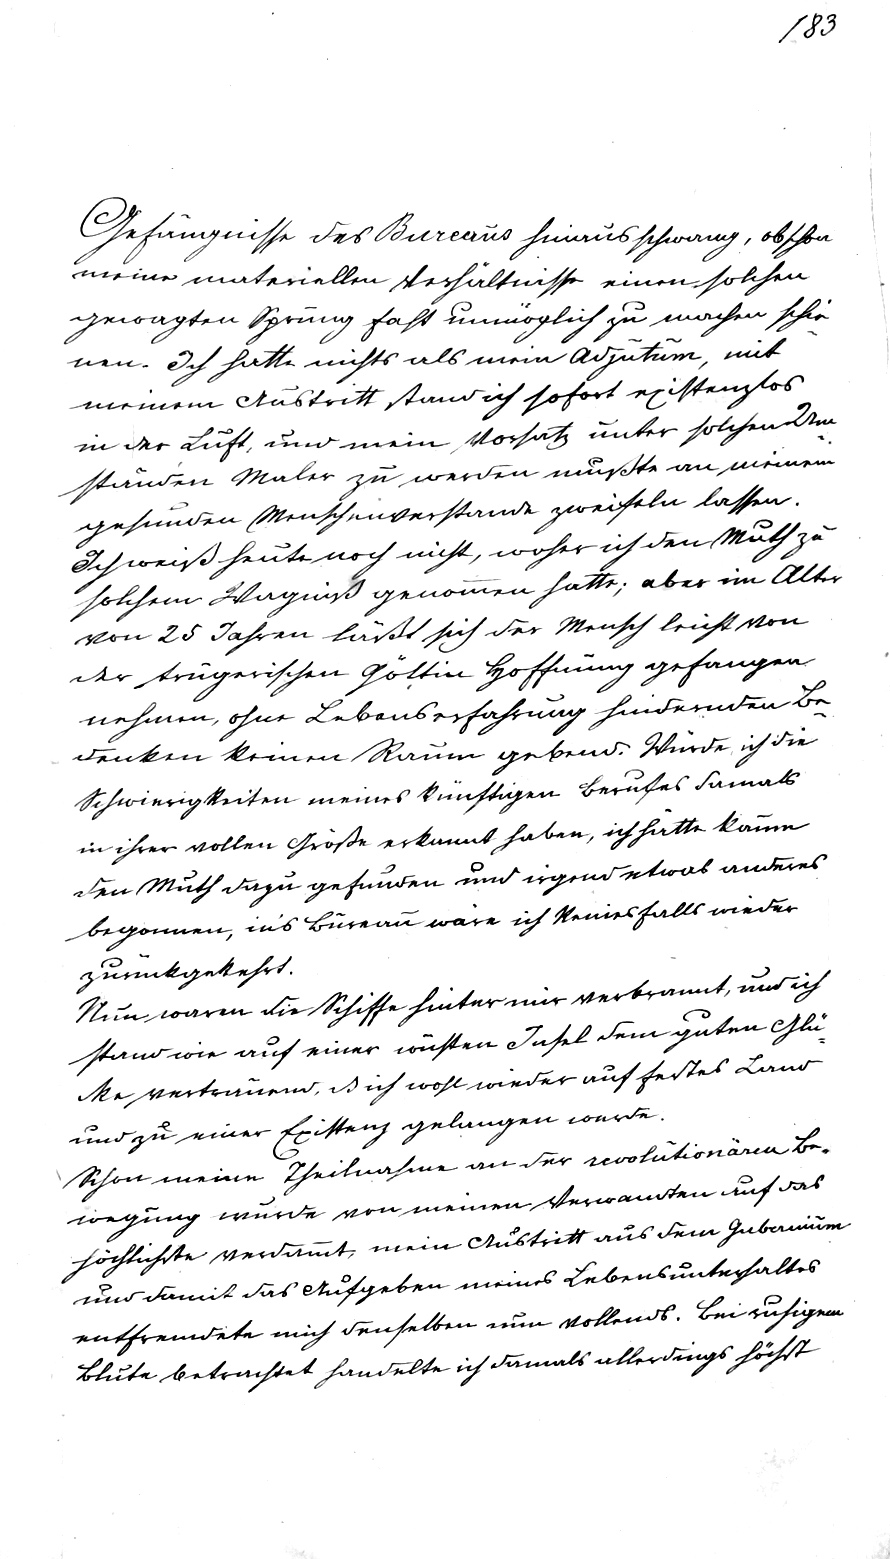 183
Gefängnisse des Bureaus hinausschwang, obschon
meine materiellen Verhältnisse einen solchen
gewagten Sprung fast unmöglich zu machen schie-
nen. Ich hatte nichts als mein Adjutum, mit
meinem Austritt stand ich sofort existenzlos
in der Luft, und mein Vorsatz unter solchen Um
ständen Maler zu werden mußte an meinem
gesunden Menschenverstande zweifeln lassen.
Ich weiß heute noch nicht, woher ich den Muth zu
solchem Wagniß genom̄en hatte; aber im Alter
von 25 Jahren läßt sich der Mensch leicht von
der trügerischen Göttin Hoffnung gefangen
nehmen, ohne Lebenserfahrung hindernden Be-
denken keinen Raum gebend. Würde ich die
Schwierigkeiten meines künftigen Berufes damals
in ihrer vollen Größe erkannt haben, ich hätte kaum
den Muth dazu gefunden und irgend etwas anderes
begonnen, in's Bureau wäre ich keinesfalls wieder
zurückgekehrt.
Nun waren die Schiffe hinter mir verbrannt, und ich
stand wie auf einer wüsten Insel dem guten Glü-
cke vertrauend, dß ich wohl wieder auf festes Land
und zu einer Existenz gelangen werde.
Schon meine Theilnahme an der revolutionären Be-
wegung wurde von meinen Verwandten auf das
höchlichste verdam̄t, mein Austritt aus dem Gubernium
und damit das Aufgeben meines Lebensunterhaltes
entfremdete mich denselben nun vollends. Bei ruhigem
Blute betrachtet handelte ich damals allerdings höchst